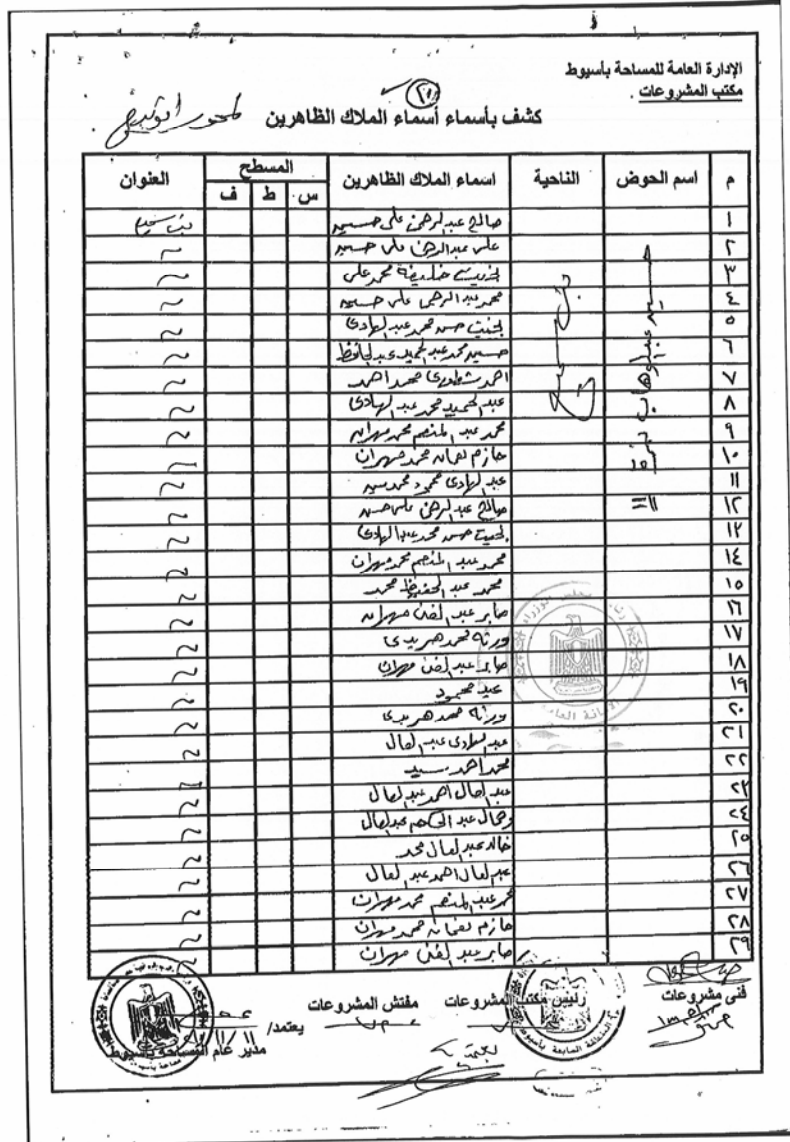 الإدارة العامة للمساحة بأسيوط
مكتب المشروعات .
كشف بأسماء أسماء الملاك الظاهرين
م اسم الحوض الناحية اسماء الملاك الظاهرين المسطح العنوان
س ط ف
حسين عبد الوهاب نمرة ١١
١ صالح عبد الرحمن على حسين
٢ على عبد الرحمن على حسين
٣ خليفة محمد على
٤ محمد عبد الرحمن على حسين
٥ بخيت حسن محمد عبد الهادى
٦ حسين محمد عبد الحميد عبد الحافظ
٧ احمد شطورى محمد احمد
٨ عبد الحميد محمد عبد الهادى
٩ محمد عبد المنعم محمد مهران
١٠ حازم نعمان محمد مهران
١١ عبد الهادى محمود محمد سيد
١٢ صالح عبد الرحمن على حسين
١٣ بخيت حسن محمد عبد الهادى
١٤ محمد عبد المنعم محمد مهران
١٥ محمد عبد الحفيظ محمد
١٦ صابر عبد الغنى مهران
١٧ ورثة محمد هريدى
١٨ صابر عبد الغنى مهران
١٩ عيد محمود
٢٠ ورثة محمد هريدى
٢١ عبد الهادى عبد العال
٢٢ محمد احمد سيد
٢٣ عبد العال احمد عبد العال
٢٤ وجمال عبد الحكم عبد العال
٢٥ خالد عبد العال محمد
٢٦ عبد العال احمد عبد العال
٢٧ محمد عبد المنعم محمد مهران
٢٨ حازم نعمان محمد مهران
٢٩ صابر عبد الغنى مهران
فنى مشروعات رئيس مكتب المشروعات مفتش المشروعات يعتمد/
مدير عام المساحة بأسيوط